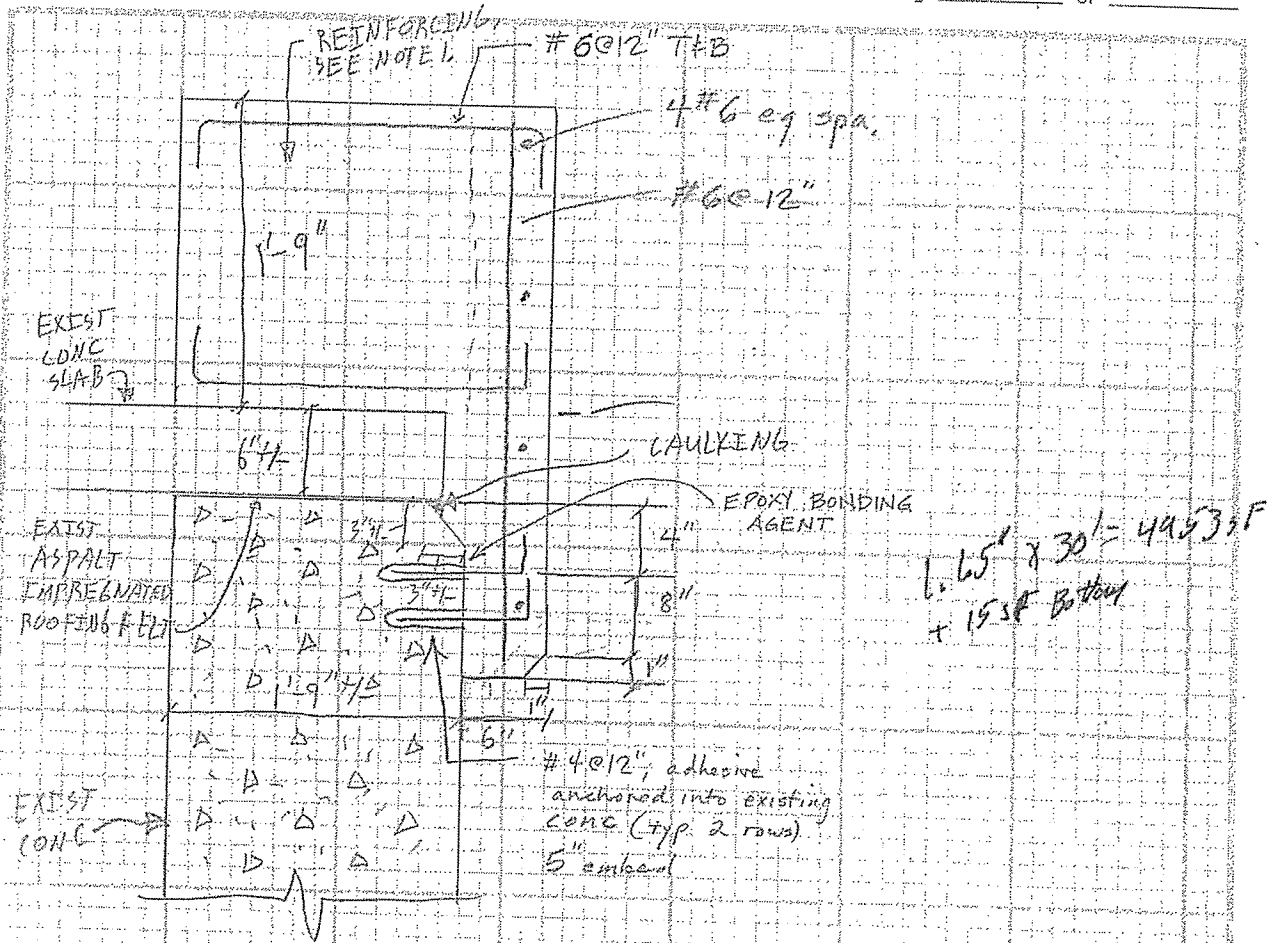 OF
REINFORCING,
SEE NOTE 1.
#6@12" T&B
4 #6 eq spa.
#6@12"
1'-9"
EXIST
CONC
SLAB
6"+/-
CAULKING
EPOXY BONDING
AGENT
EXIST
ASPALT
IMPREGNATED
ROOFING FELT
3"+/-
3"+/-
4"
8"
1"
1"
1'-9"+/-
6"
1.65' x 30' = 49.53 SF
+ 15 SF Bottom
#4@12", adhesive
anchored into existing
conc (typ. 2 rows)
5" embed
EXIST
CONC